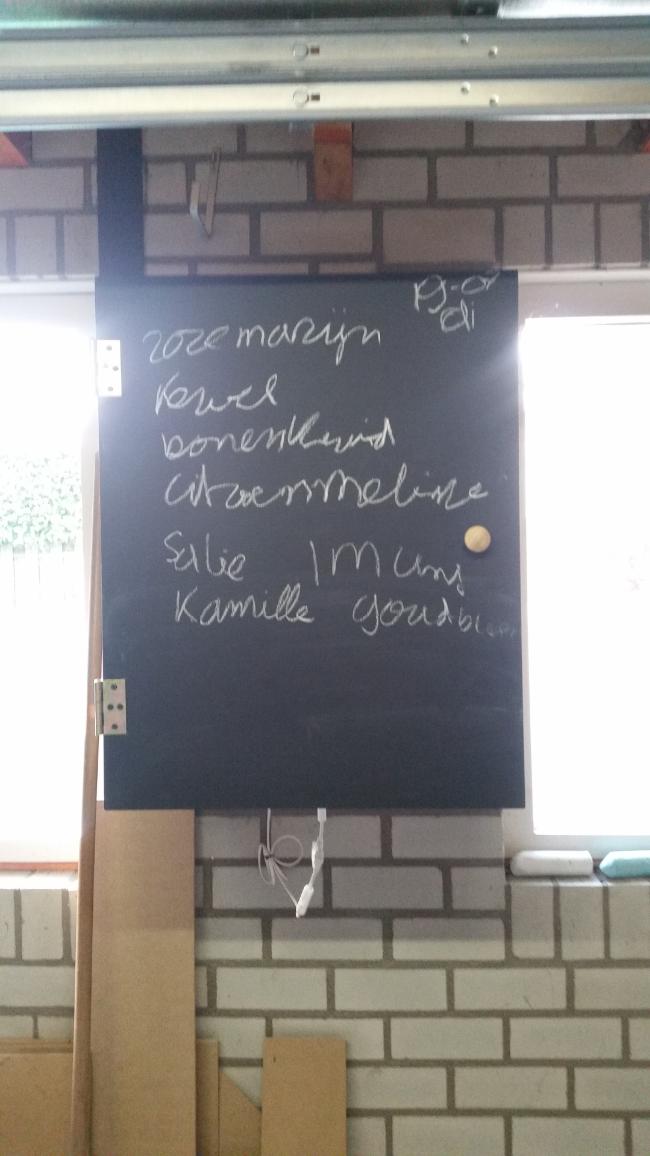 rozemarijn
Kervel
bonenkruid
citroenmelisse
Salie 1 Munt
Kamille goudbloem